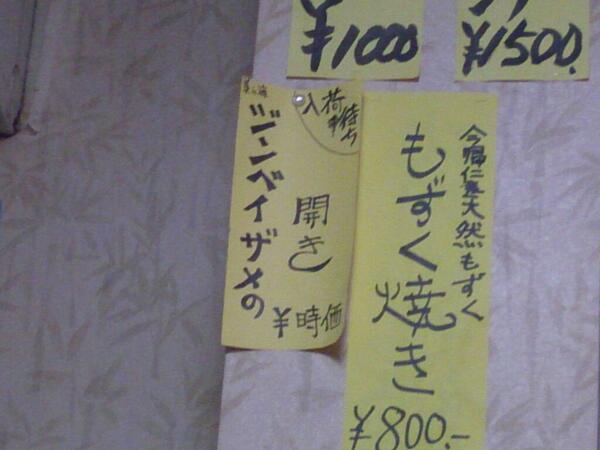 ¥1000
¥1500.
入荷待ち
ジンベイザメの
開き
¥時価
今帰仁産天然もずく
もずく焼き
¥800.-